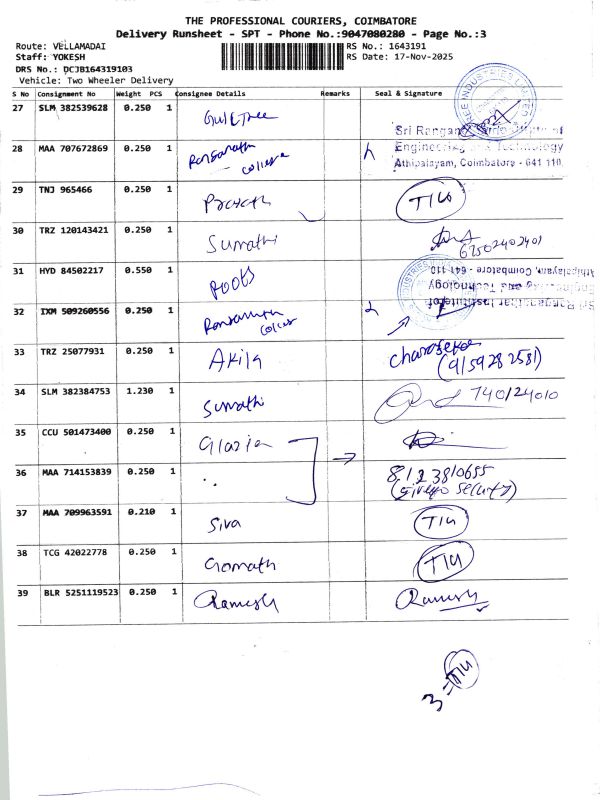 THE PROFESSIONAL COURIERS, COIMBATORE
Delivery Runsheet - SPT - Phone No.:9047080280 - Page No.:3
Route: VELLAMADAI RS No.: 1643191
Staff: YOKESH RS Date: 17-Nov-2025
DRS No.: DCJB164319103
Vehicle: Two Wheeler Delivery
S No Consignment No Weight PCS Consignee Details Remarks Seal & Signature
27 SLM 382539628 0.250 1
Sri Ranganathar Institute of
28 MAA 707672869 0.250 1 Ranganath college Engineering and Technology
Athipalayam, Coimbatore - 641 110.
29 TNJ 965466 0.250 1 T14
30 TRZ 120143421 0.250 1 Sumathi
31 HYD 84502217 0.550 1 ROOTS
Athipalayam, Coimbatore - 641 110
Engineering and Technology
Sri Ranganathar Institute of
32 IXM 509260556 0.250 1
33 TRZ 25077931 0.250 1 Akila
(9159282581)
34 SLM 382384753 1.230 1 Sumathi 740124010
35 CCU 501473400 0.250 1
36 MAA 714153839 0.250 1 " 8123810655
(given to security)
37 MAA 709963591 0.210 1 Siva T14
38 TCG 42022778 0.250 1 Gomath T14
39 BLR 5251119523 0.250 1 Ramesh Ramesh
3 - T14